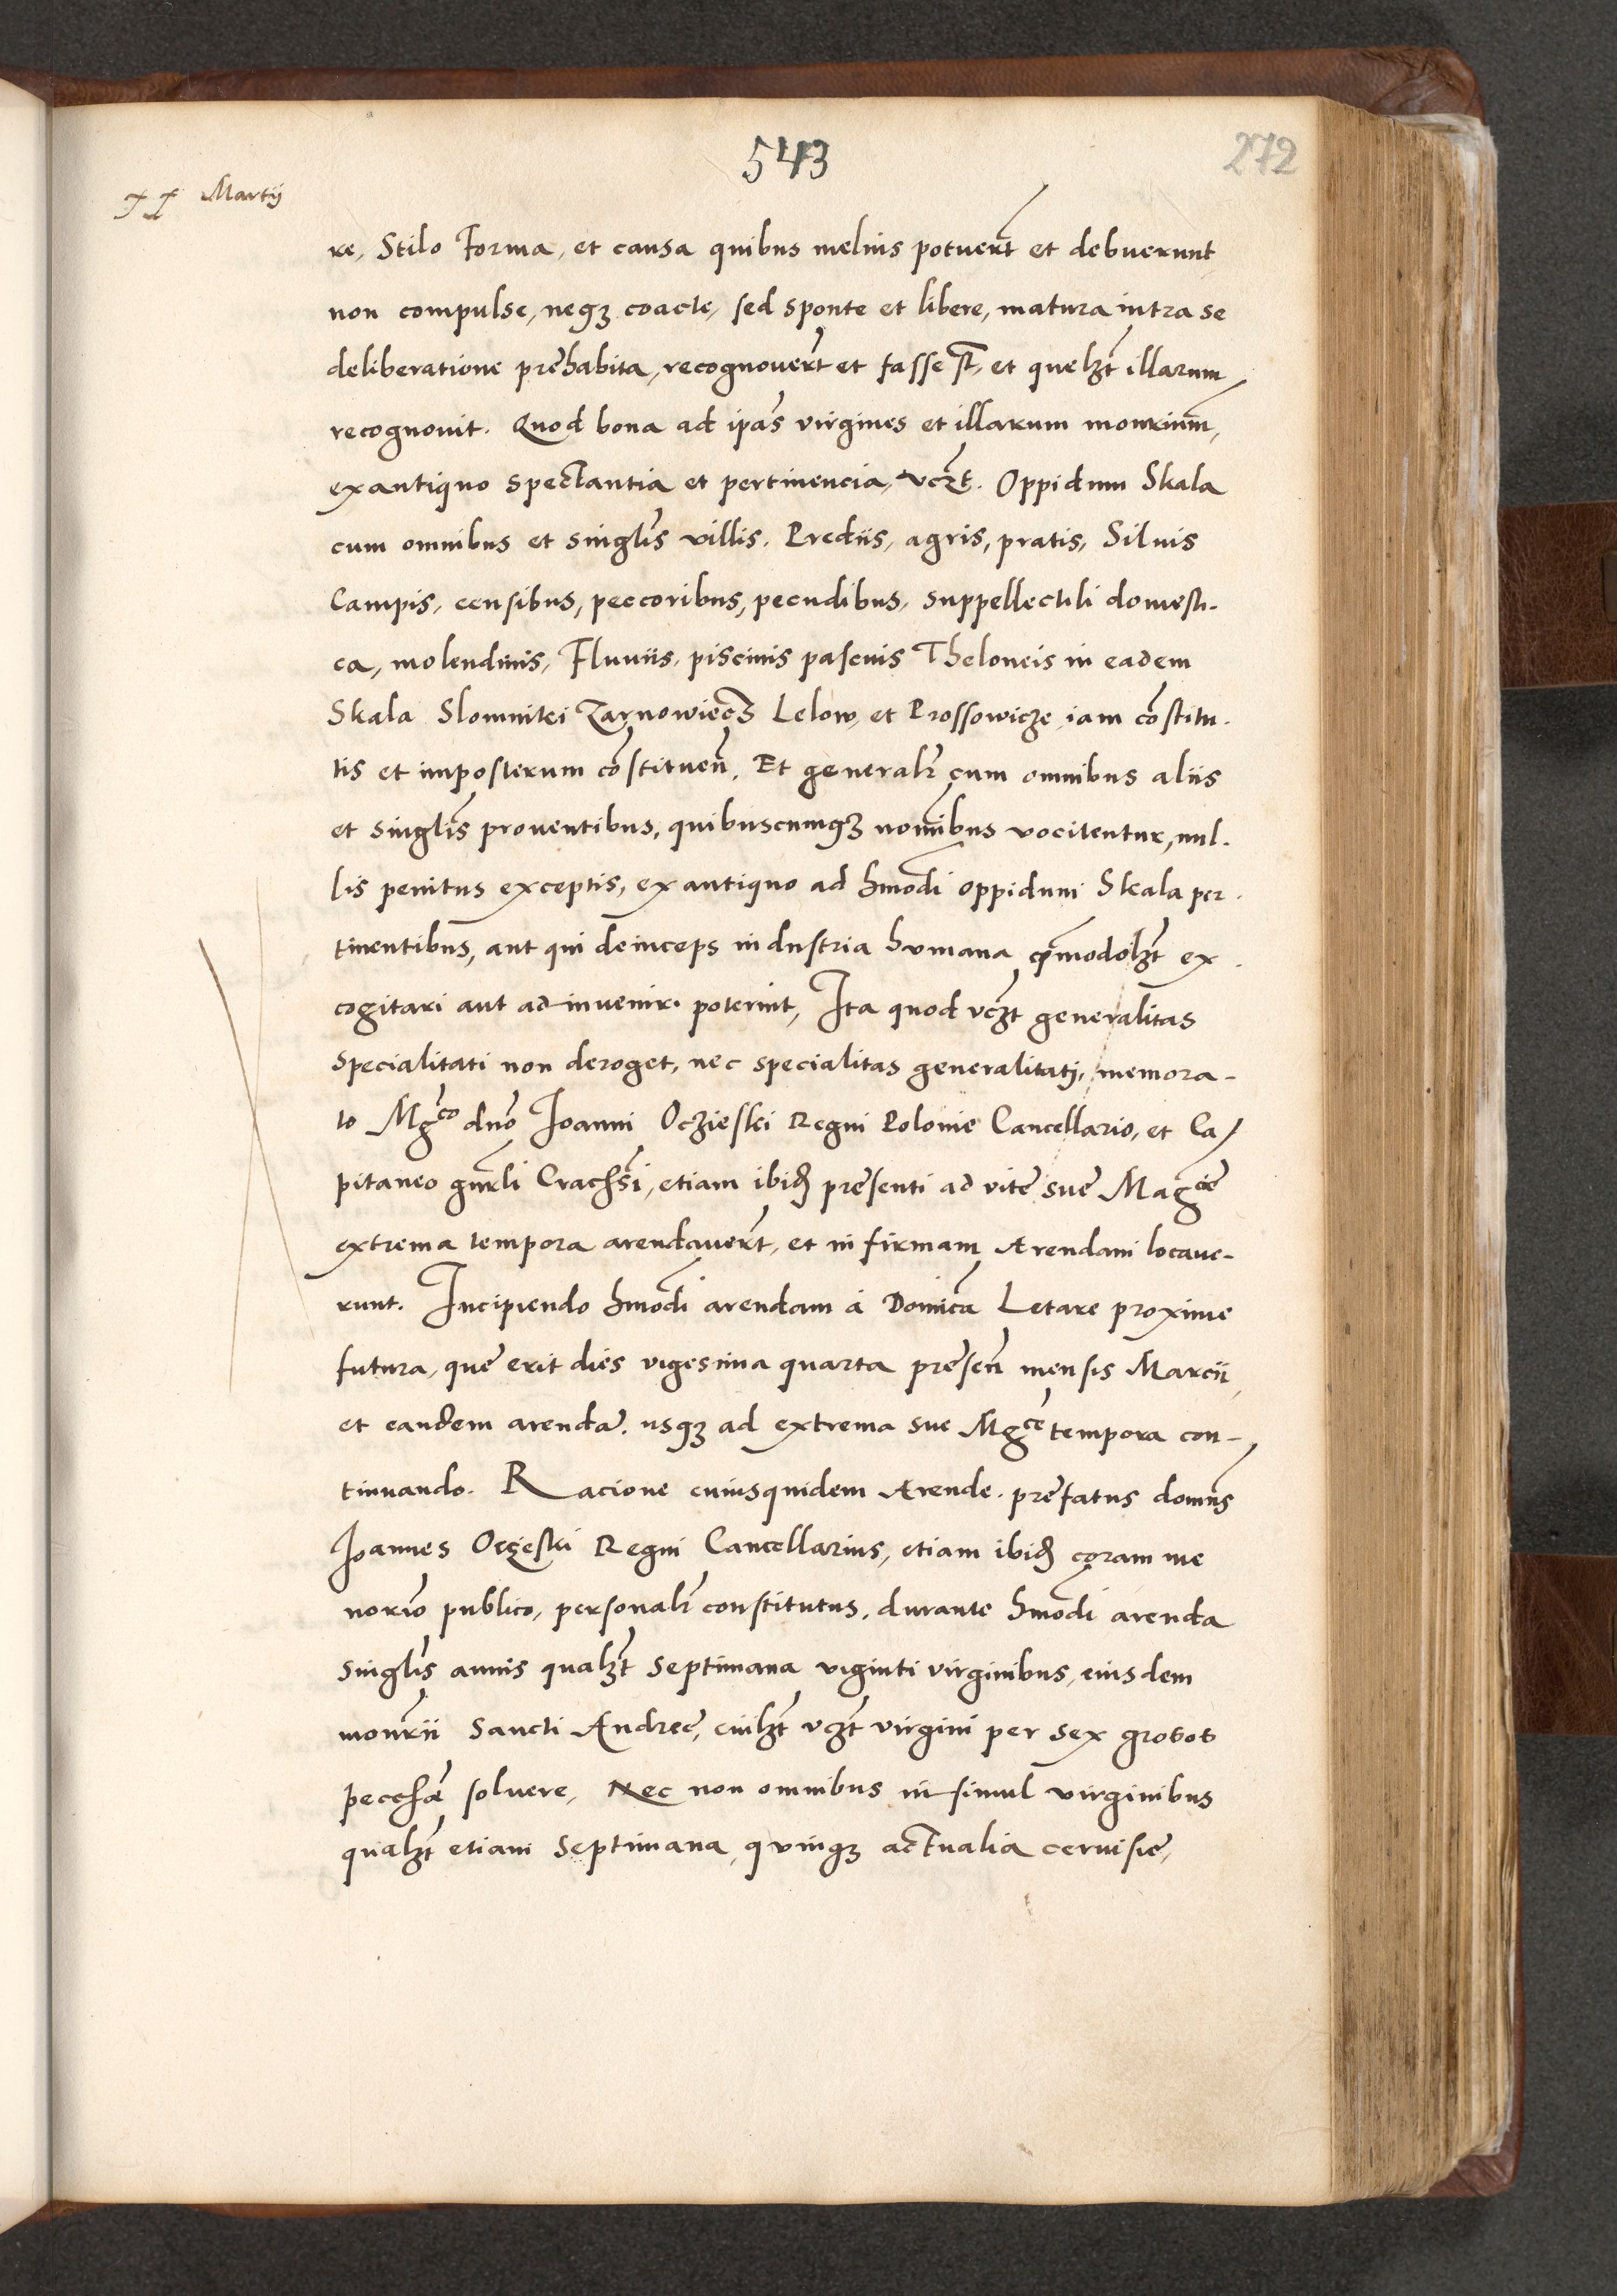 543
272
Martij
re, Stilo Forma, et causa quibus melius potuerũt et debuerunt
non compulse, neqꝫ coacte, sed sponte et libere, matura intra se
deliberatione prehabita, recognouerũt et fasse st̃, et quelꝫt illarum
recognouit. Quod bona ad ipãs virgines et illarum monrium̃,
ex antiquo spectantia et pertinencia, vcꝫt. Oppidum Skala
cum omnibus et singlĩs villis. Prediis, agris, pratis, Siluis
Campis, censibus, peccoribus, pecudibus, suppellectili domesti-
ca, molendinis, Fluuiis, piscinis pascuis Theloneis in eadem
Skala Slomniki Zarnowiecz Lelow, et Prossowicze iam cõstitu-
tis et imposterum cõstitueñ. Et generalr̃ cum omnibus aliis
et singlĩs prouentibus, quibuscumqꝫ nomĩbus vocitentur, nul-
lis penitus exceptis, ex antiquo ad hmõdi oppidum Skala per-
tinentibus, aut qui deinceps industria humana qm̃odolꝫt ex-
cogitari aut adinuenir. poterint, Ita quod vcꝫt generalitas
specialitati non deroget, nec specialitas generalitatj, memora-
to Mgco dnõ Joanni Oczieski Regni Polonie Cancellario, et Ca-
pitaneo gnrãli Cracsĩ, etiam ibid presenti ad vite sue Magcie
extrema tempora arendauerũt, et in firmam Arendam locaue-
runt. Incipiendo hmõdi arendam a Domica Letare proxime
futura, que erit dies vigesima quarta preseñ mensis Marcii,
et eandem arendã. usqꝫ ad extrema sue Mgce tempora con-
tinuando. Racione cuiusquidem Arende. prefatus domns
Joannes Oczeski Regni Cancellarius, etiam ibid coram me
norio publico, personalr̃ constitutus, durante hmõdi arenda
singlĩs annis qualꝫt Septimana viginti virginibus, eiusdem
monrii Sancti Andree, cuilꝫt vcꝫt virgini per sex grossos
soluere, Nec non omnibus insimul virginibus
qualꝫt etiam Septimana, quinqꝫ actualia ceruisie,